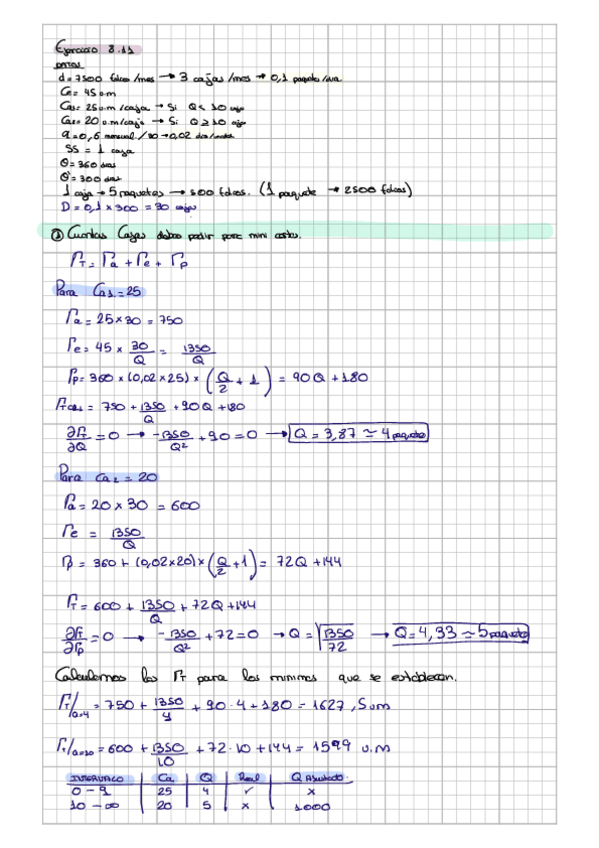 Ejercicio 8.11
DATOS
d = 7500 folios/mes → 3 cajas/mes → 0,1 paquete/dia
Ce = 45 u.m
Ca1 = 25 u.m/caja → Si Q < 10 cajas
Ca2 = 20 u.m/caja → Si Q ≥ 10 cajas
a = 0,6 mensual /30 → 0,02
SS = 1 caja
θ = 360 dias
θ' = 300 dias
1 caja → 5 paquetes → 500 folios. (1 paquete → 2500 folios)
D = 0,1 x 300 = 30 cajas
① Cuantas Cajas debo pedir para mini costes.
ΓT = Γa + Γe + Γp
Para Ca1 = 25
Γa = 25 x 30 = 750
Γe = 45 x 30/Q = 1350/Q
Γp = 360 x (0,02 x 25) x (Q/2 + 1) = 90Q + 180
ΓTca1 = 750 + 1350/Q + 90Q + 180
∂Γ/∂Q = 0 → -1350/Q² + 90 = 0 → Q = 3,87 ≃ 4 paquetes
Para Ca2 = 20
Γa = 20 x 30 = 600
Γe = 1350/Q
Γp = 360 + (0,02 x 20) x (Q/2 + 1) = 72Q + 144
ΓT = 600 + 1350/Q + 72Q + 144
∂Γ/∂Γp = 0 → -1350/Q² + 72 = 0 → Q = √1350/72 → Q = 4,33 ≃ 5 paquetes
Calculamos los ΓT para los minimos que se establecen.
ΓT/Q=4 = 750 + 1350/4 + 90·4 + 180 = 1627,5 u.m
ΓT/Q=10 = 600 + 1350/10 + 72·10 + 144 = 1599 u.m
INTERVALO Ca Q Real Q Ajustado
0 - 9 25 4 ✓ x
10 - ∞ 20 5 x 1000